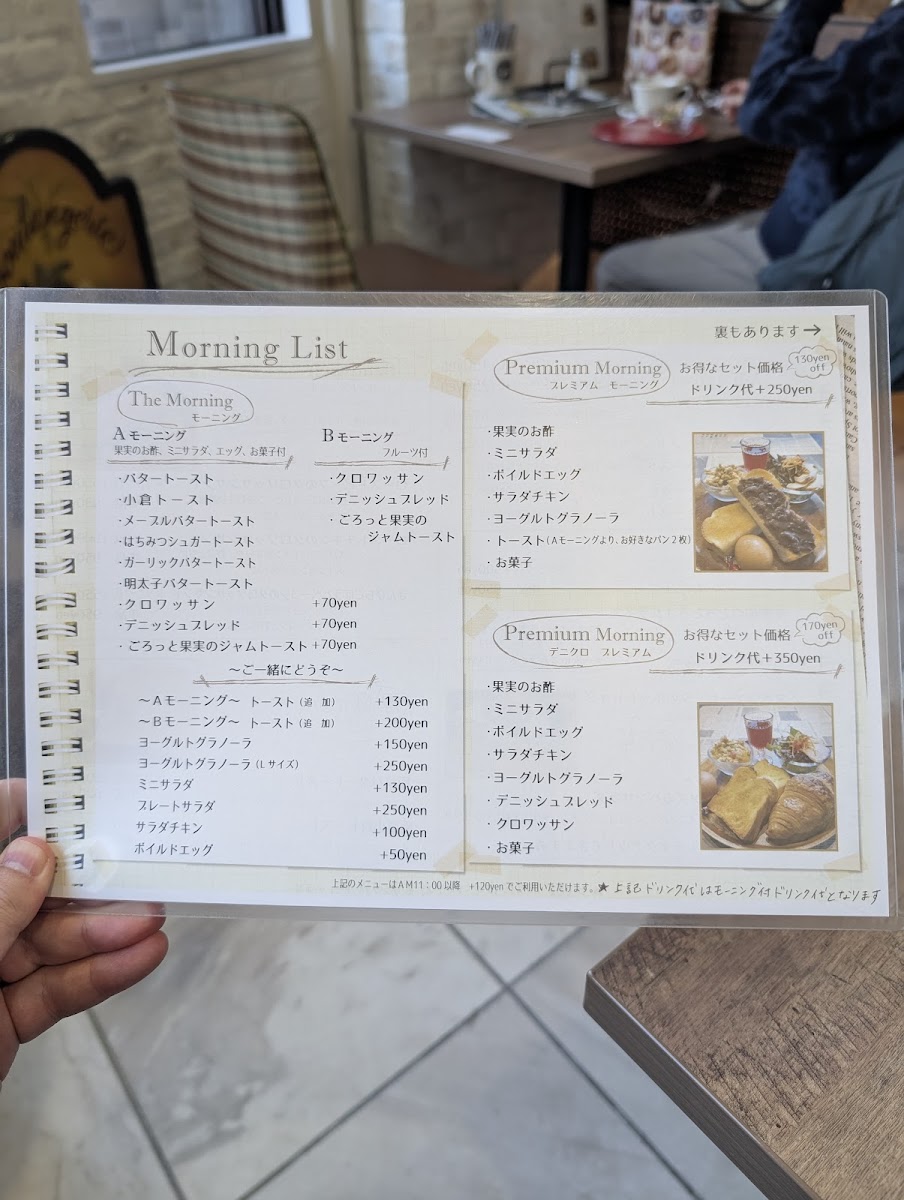 Morning List
裏もあります→
The Morning
モーニング
Aモーニング
果実のお酢、ミニサラダ、エッグ、お菓子付
・バタートースト
・小倉トースト
・メープルバタートースト
・はちみつシュガートースト
・ガーリックバタートースト
・明太子バタートースト
・クロワッサン +70yen
・デニッシュブレッド +70yen
・ごろっと果実のジャムトースト +70yen
Bモーニング
フルーツ付
・クロワッサン
・デニッシュブレッド
・ごろっと果実の
ジャムトースト
〜ご一緒にどうぞ〜
〜Aモーニング〜 トースト(追 加) +130yen
〜Bモーニング〜 トースト(追 加) +200yen
ヨーグルトグラノーラ +150yen
ヨーグルトグラノーラ(Lサイズ) +250yen
ミニサラダ +130yen
プレートサラダ +250yen
サラダチキン +100yen
ボイルドエッグ +50yen
Premium Morning
プレミアム モーニング
お得なセット価格
130yen
off
ドリンク代+250yen
・果実のお酢
・ミニサラダ
・ボイルドエッグ
・サラダチキン
・ヨーグルトグラノーラ
・トースト(Aモーニングより、お好きなパン2枚)
・お菓子
Premium Morning
デニクロ プレミアム
お得なセット価格
170yen
off
ドリンク代+350yen
・果実のお酢
・ミニサラダ
・ボイルドエッグ
・サラダチキン
・ヨーグルトグラノーラ
・デニッシュブレッド
・クロワッサン
・お菓子
上記のメニューはAM11:00以降 +120yenでご利用いただけます。★上記ドリンク代はモーニング付ドリンク代となります